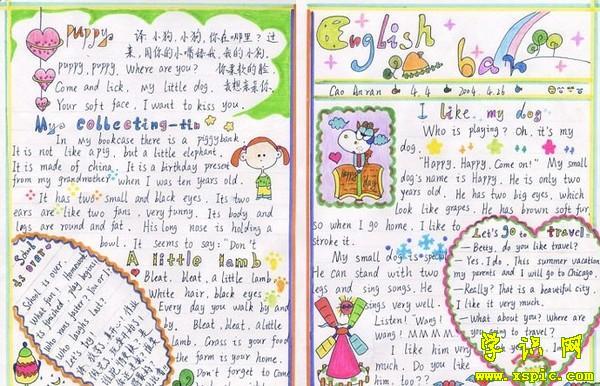 Puppy
诗 小狗,小狗,你在哪里?过
来,用你的小嘴舔我,我的小狗.
puppy, puppy. Where are you? 你柔软的脸.
Come and lick, my little dog. 我想亲亲你.
Your soft face. I want to kiss you.
My collecting-tin
In my bookcase there is a piggybank.
It is not like a pig, but a little elephant.
It is made of china. It is a birthday present
from my grandmother when I was ten years old.
It has two small and black eyes. Its two
ears are like two fans, very funny. Its body and
legs are round and fat. His long nose is holding a
bowl. It seems to say: "Don't
School is over
School is over.
What fun!
finished, day begins.
Who runs faster? You or I?
Who laughs last?
A little lamb
Bleat, bleat, a little lamb.
White hair, black eyes.
Every day you walk by and
by. Bleat, bleat, a little
lamb. Grass is your food
the farm is your home.
Don't forget to come
English
bar
Cao Anran 4.4 2004.4.26
I like my dog
Who is playing? Oh, it's my
dog.
"Happy, Happy, Come on!" My small
dog's name is Happy. He is only two
years old. He has two big eyes, which
look like grapes. He has brown soft fur,
so when I go home. I like to
stroke it.
My small dog is special
He can stand with two
legs and sing songs. He
sings very well.
Listen! Wang!
Wang!
I like him very
much. Do you like
him, too?
Let's go to travel.
— Betty, do you like travel?
— Yes. I do. This summer vacation
my parents and I will go to Chicago.
— Really? That is a beautiful city.
I like it very much.
— What about you? Where are
you going to travel?
学识网
www.xspic.com